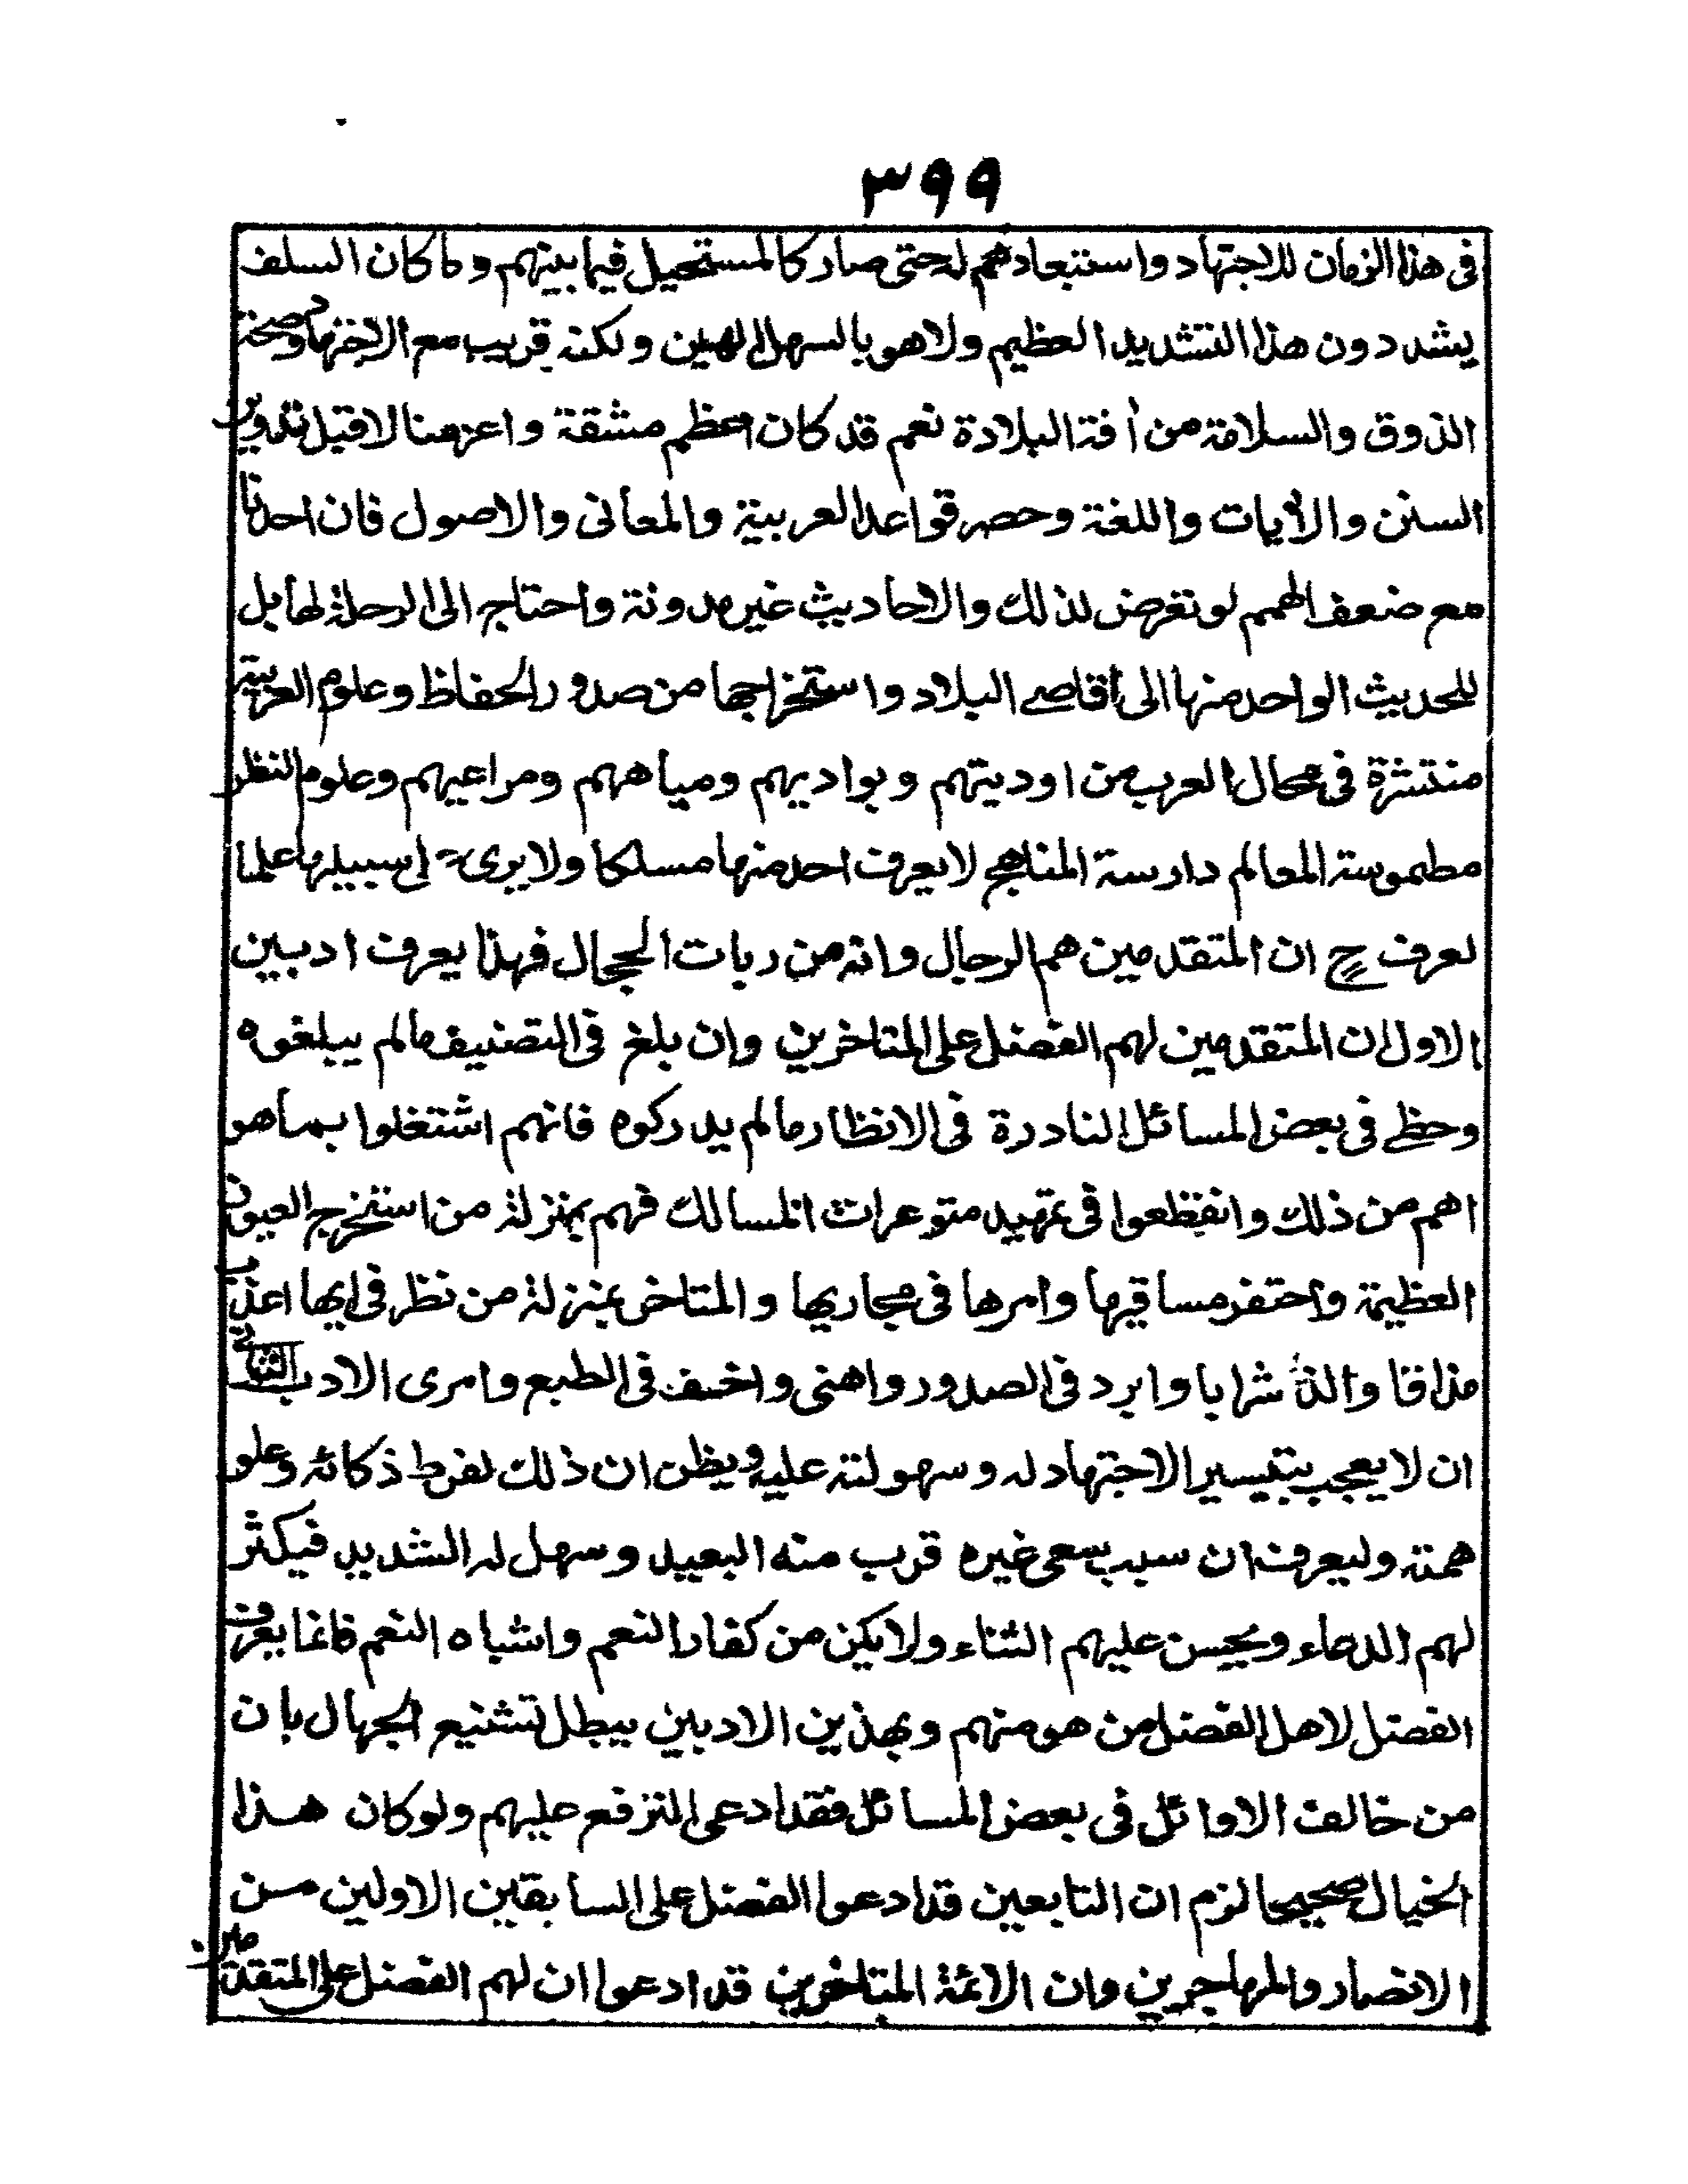 ٣٩٩
فى هذا الزمان للاجتهاد واستبعادهم له حتى صار كالمستحيل فيما بينهم وما كان السلف
يشددون هذا التشديد العظيم ولا هو بالسهل الهين ولكنه قريب مع الاجتهاد وصحة
الذوق والسلامة من أفة البلادة نعم قد كان اعظم مشقة واعز منالا قبل تدوين
السنن والأيات واللغة وحصر قواعد العربية والمعانى والاصول فان احدنا
مع ضعف الهمم لو تعرض لذلك والاحاديث غير مدونة واحتاج الى الرحلة لها بل
للحديث الواحد منها الى أقاصى البلاد واستخراجها من صدور الحفاظ وعلوم العربية
منتشرة فى محال العرب من اوديتهم وبواديهم ومياههم ومراعيهم وعلوم النظر
مطموسة المعالم دارسة المناهج لا يعرف احد منها مسلكا ولا يرى الى سبيلها علما
لعرف ح ان المتقدمين هم الرجال وانه من ربات الحجال فهذا يعرف ادبين
الاول ان المتقدمين لهم الفضل على المتاخرين وإن بلغ فى التصنيف مالم يبلغوه
وحظى فى بعض المسائل النادرة فى الانظار مالم يدركوه فانهم اشتغلوا بماهو
اهم من ذلك وانقطعوا فى تمهيد متوعرات المسالك فهم بمنزلة من استخرج العيون
العظيمة واحتفر مساقيها وامرها فى مجاريها والمتاخر بمنزلة من نظر فى ايها اعذب
مذاقا والذ شرابا وابرد فى الصدور واهنى واخف فى الطبع وامرى الادب الثانى
ان لا يعجب بتيسير الاجتهاد له وسهولته عليه ويظن ان ذلك لفرط ذكائه وعلو
همته وليعرف ان سبب سعى غيره قرب منه البعيد وسهل له الشديد فيكثر
لهم الدعاء ويحسن عليهم الثناء ولا يكن من كفار النعم واشباه النعم فانما يعرف
الفضل لاهل الفضل من هو منهم وبهذين الادبين يبطل تشنيع الجهال بان
من خالف الاوائل فى بعض المسائل فقد ادعى الترفع عليهم ولو كان هذا
الخيال صحيحا لزم ان التابعين قد ادعوا الفضل على السابقين الاولين من
الانصار والمهاجرين وان الائمة المتاخرين قد ادعوا ان لهم الفضل على المتقدمين